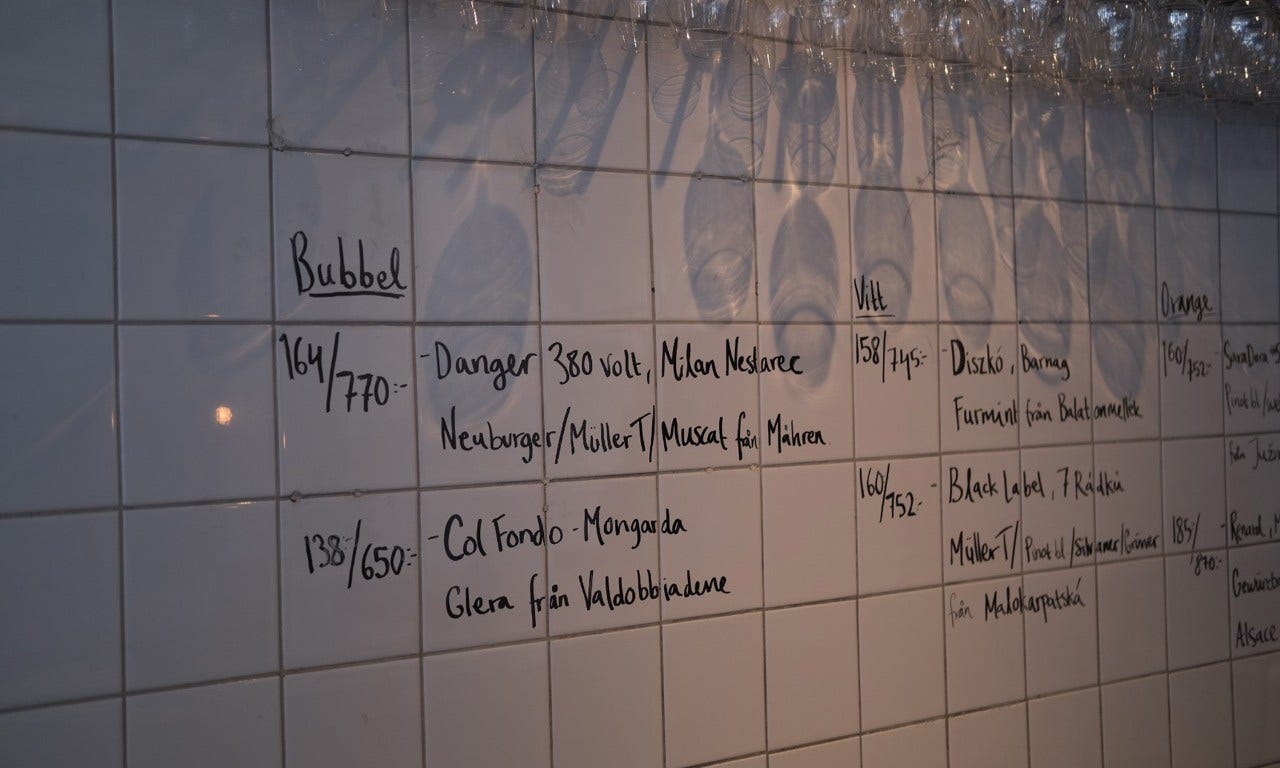 Bubbel
164/770:-
-Danger 380 volt, Milan Nestarec
Neuburger/Müller T/Muscat från Måhren
138:-/650:-
-Col Fondo - Mongarda
Glera från Valdobbiadene
Vitt
158/745:-
-Diszkó, Barnag
Furmint från Balatonmellék
160/752:-
-Black Label, 7 Rádkiu
Müller T/Pinot bl/Silvaner/Grüner
från Malokarpatská
Orange
160/752:-
SaraDora
Pinot bl/
från
185/870:-
-Renard,
Alsace